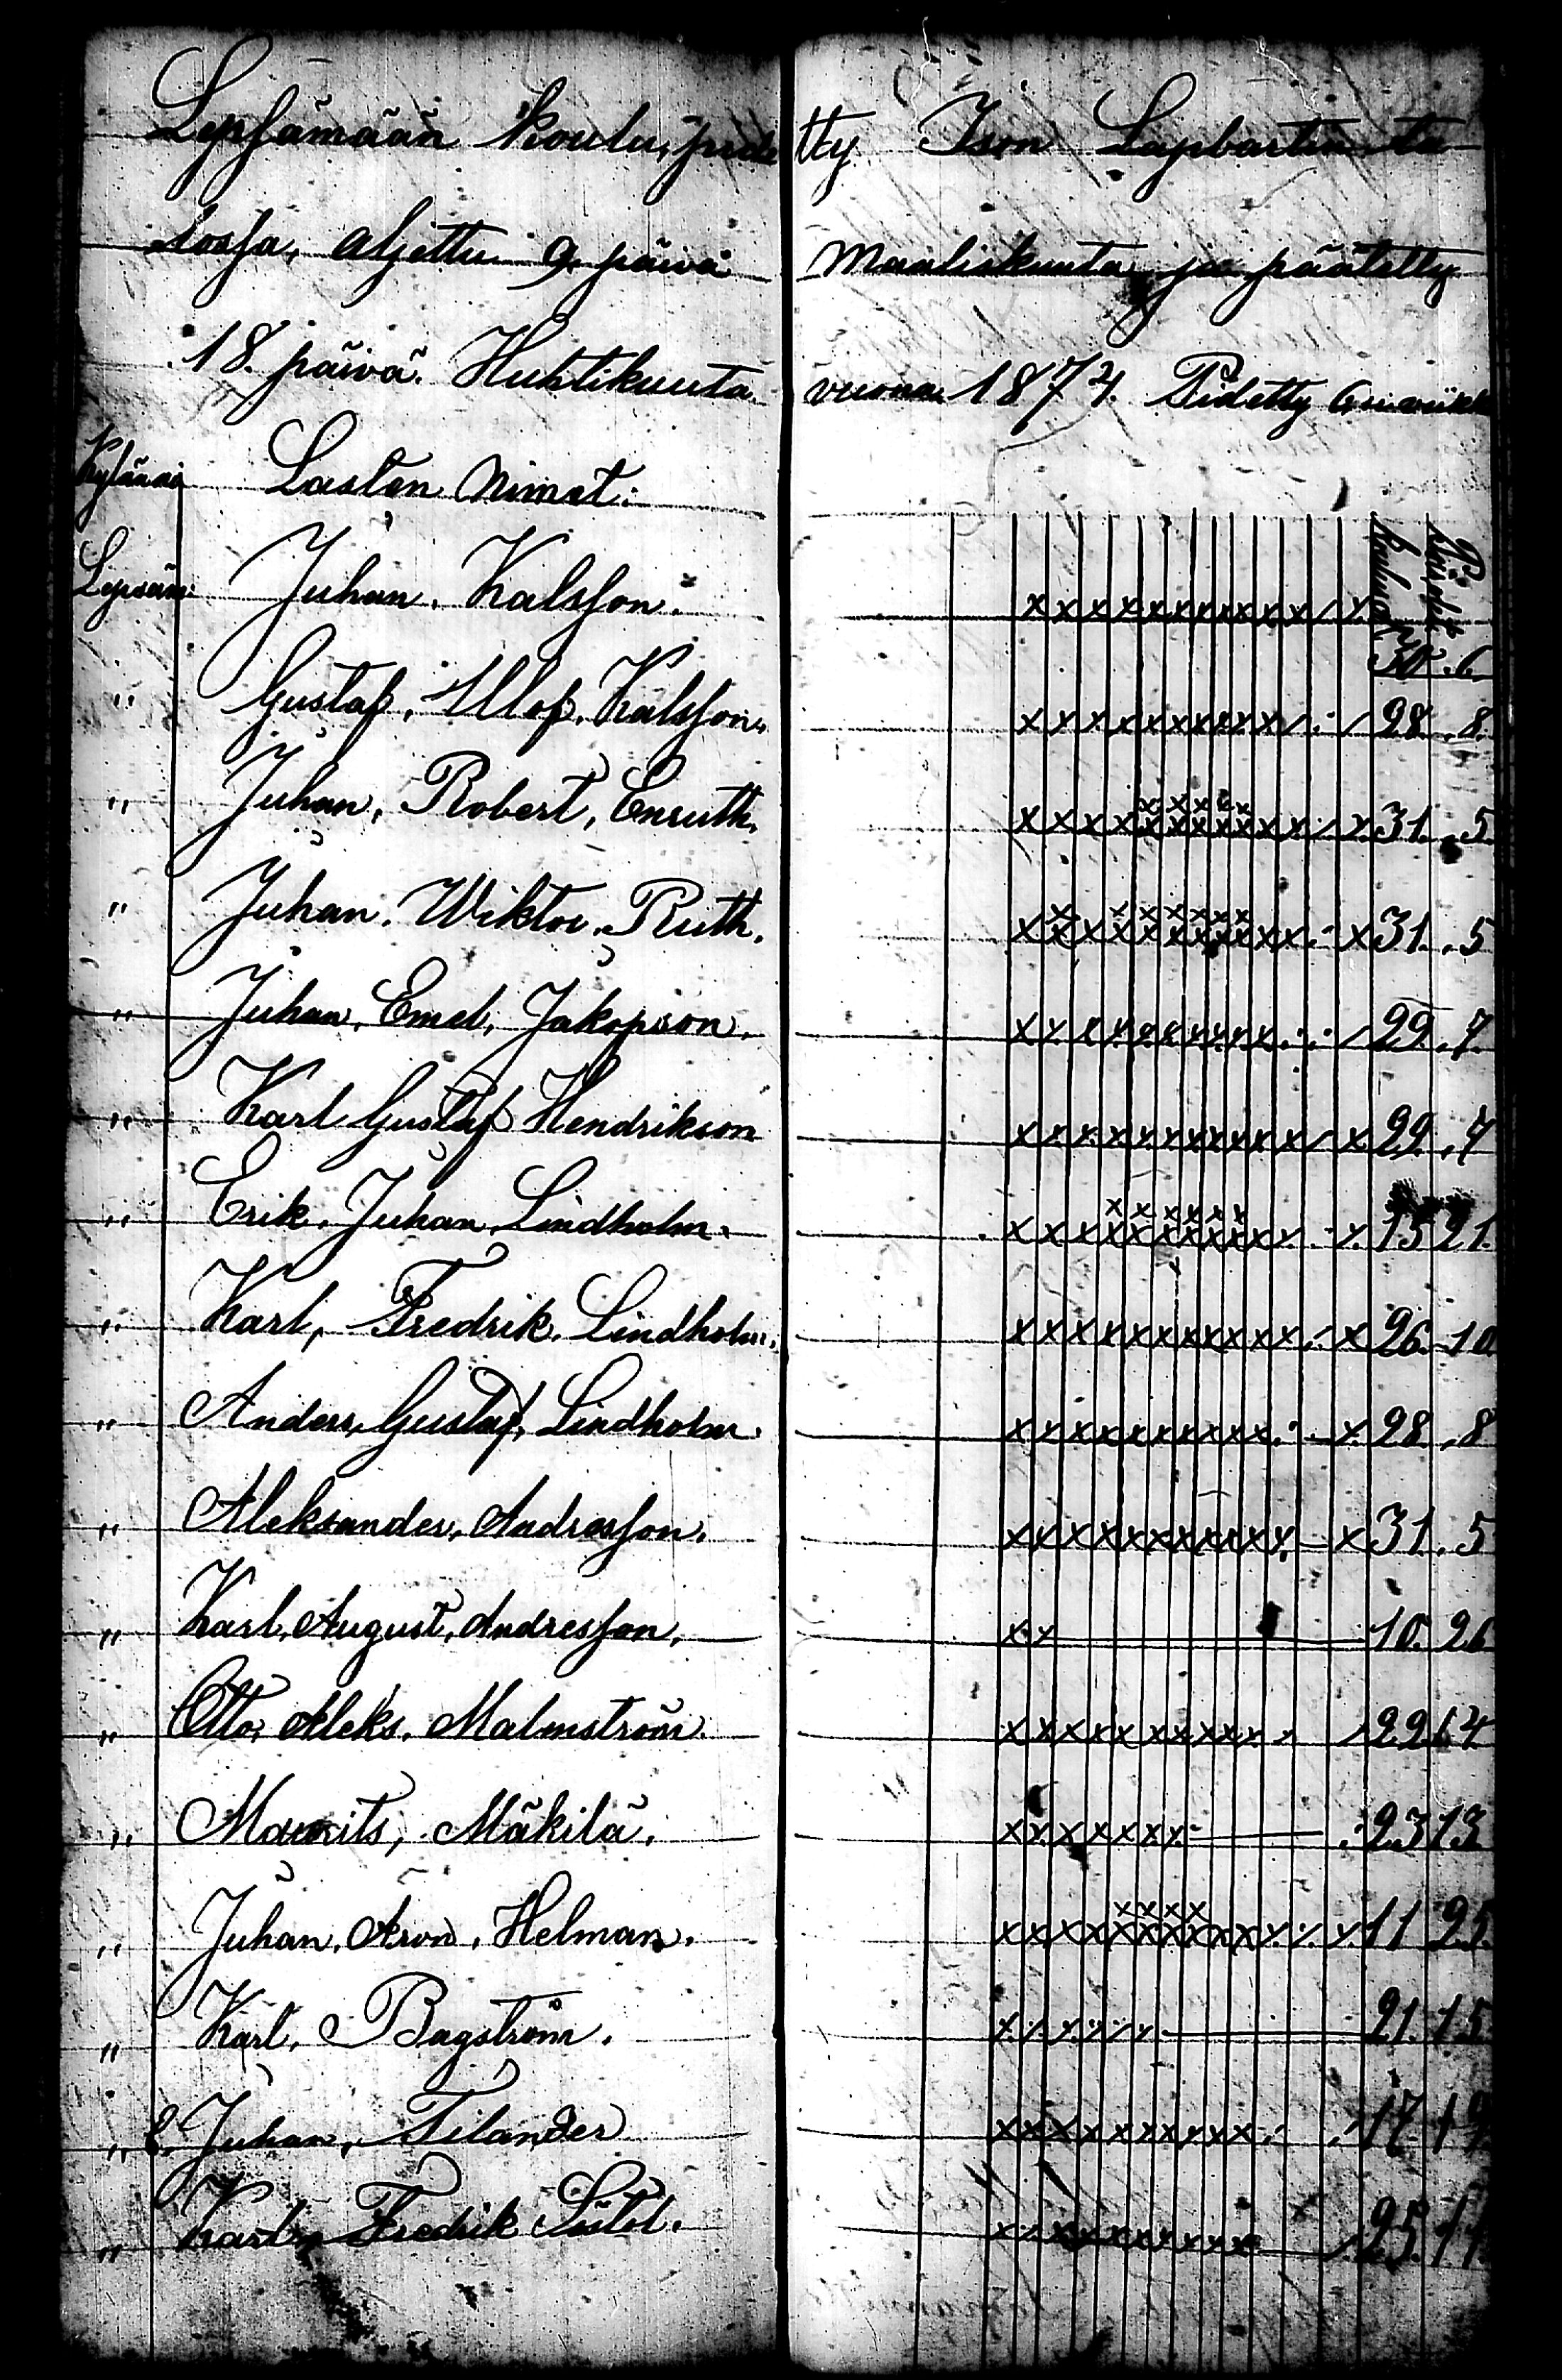 Lepsämään Koulu, pidetty Ison Lapbartin ta
lossa, aljettu 9. päivä Maaliskuuta ja päätetty
18. päivä. Huhtikuuta. vuonna 1874. Pidetty 6. viikk
Lasten Nimet: Koulusa Pois
Lepsäm: Juhan. Kalsson. x x x x x x x x x x x / x. 30. 6.
" Gustaf. Ulof. Kalsson. x x x x x x x x x x / . / 28. 8.
x x x x x
" Juhan, Robert, Enruth. x x x x x x x x x x x / x 31. 5
x x x x x x x
" Juhan. Wiktor. Ruth. x x x x x x x x x x x . x 31. 5
" Juhan, Emel, Jakopson. x x x x x x x x x x . . / 29. 7.
" Karl Gustaf Hendrikson x x x x x x x x x x x / x 29. 7
x x x x x x
" Erik. Juhan Lindholm. x x x x x x x x x x x . x 15 21.
" Karl, Fredrik. Lindholm. x x x x x x x x x x x / x 26. 10
" Anders, Gustaf, Lindholm. x x x x x x x x x x . . x 28. 8
" Aleksander, Andresson. x x x x x x x x x x x — x 31. 5
" Karl, August, Andresson. x x 10. 26
" Otto, Aleks. Malmström. x x x x x x x x x x / / 22 14
" Maurits, Mäkilä. x x x x x x x 23 13
x x x x
" Juhan, Aron, Helman. x x x x x x x x x x x x x 11 25.
" Karl, Bagström. x / x x / x 21. 15
" Juhan, Tilander x x x x x x x x x x . / 17. 19
" Karl, Fredrik x / x x x x x x x x / 25. 11.